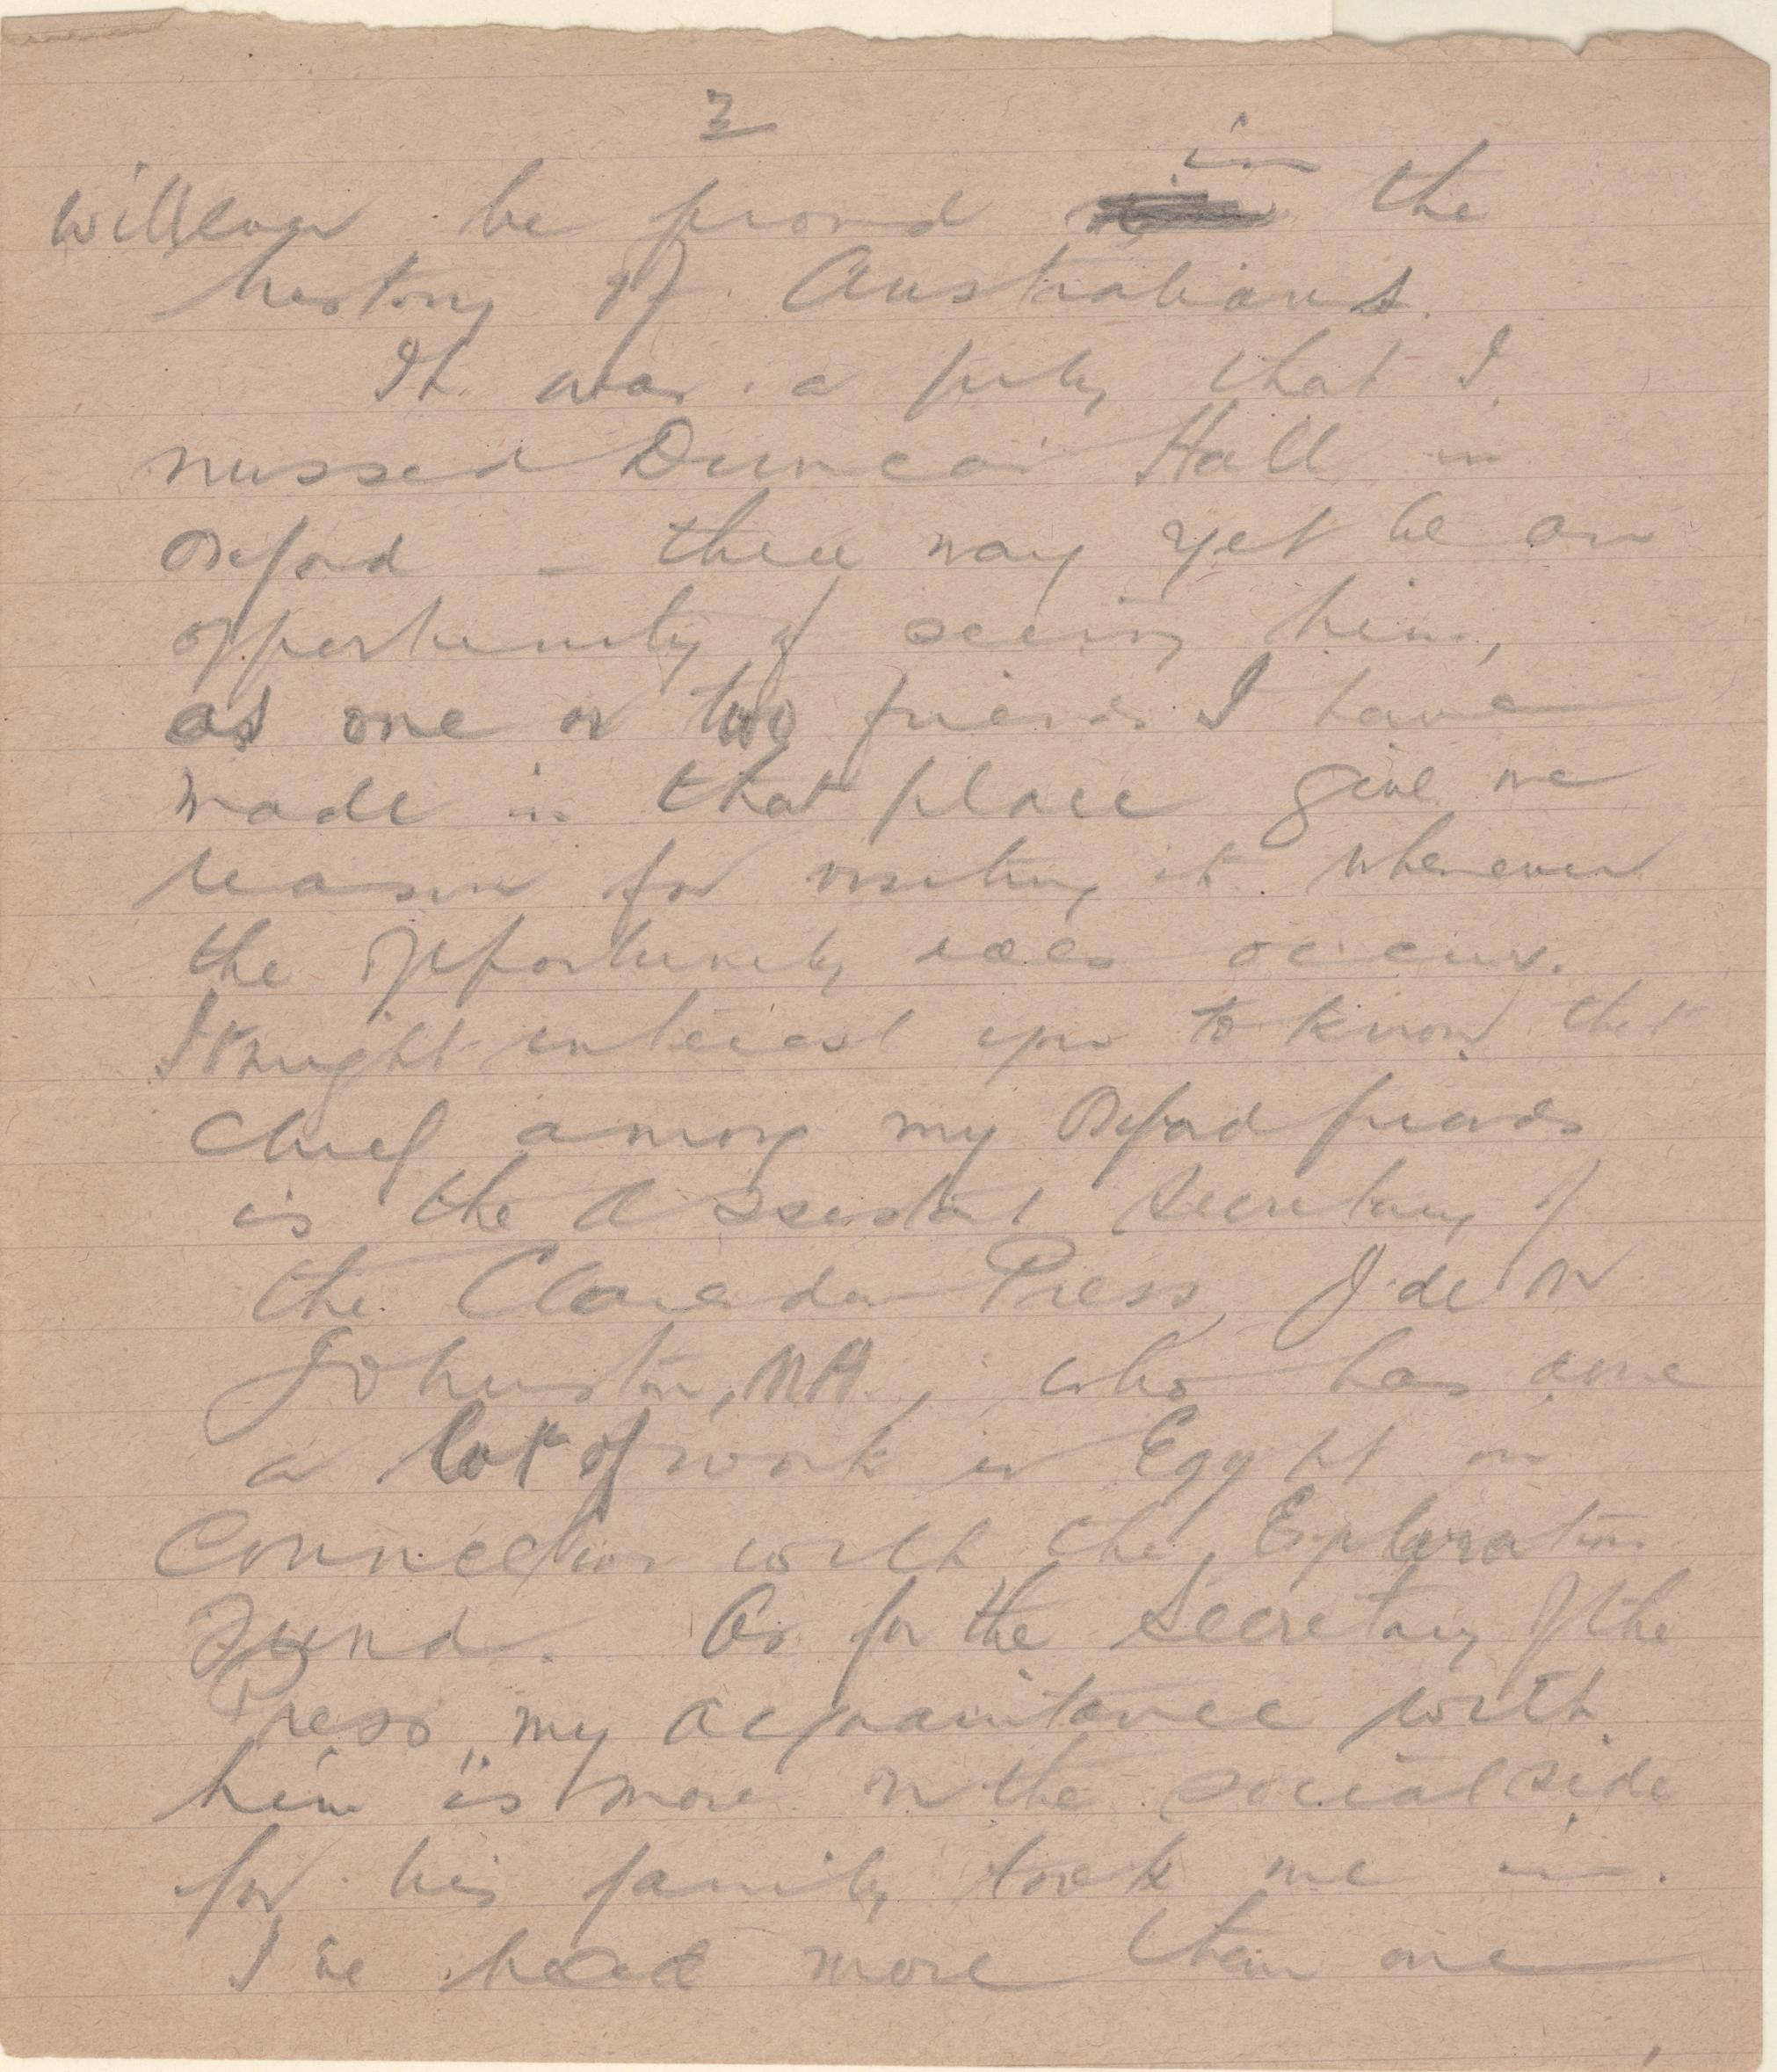 2
will ever be proud in the
history of Australians.
It was a pity that I
missed Duncan Hall in
Oxford – there may yet be an
opportunity of seeing him,
as one or two friends I have
made in that place give me
reason for visiting it whenever
the opportunity does occur.
It might interest you to know that
chief among my Oxford friends
is the Assistant Secretary of
the Clarendon Press, J. de M
Johnston, MA., who has done
a lot of work in Egypt in
connection with the Exploration
Fund. As for the Secretary of the
Press, my acquaintance with
him is more on the social side
for his family took me in.
I've had more than one